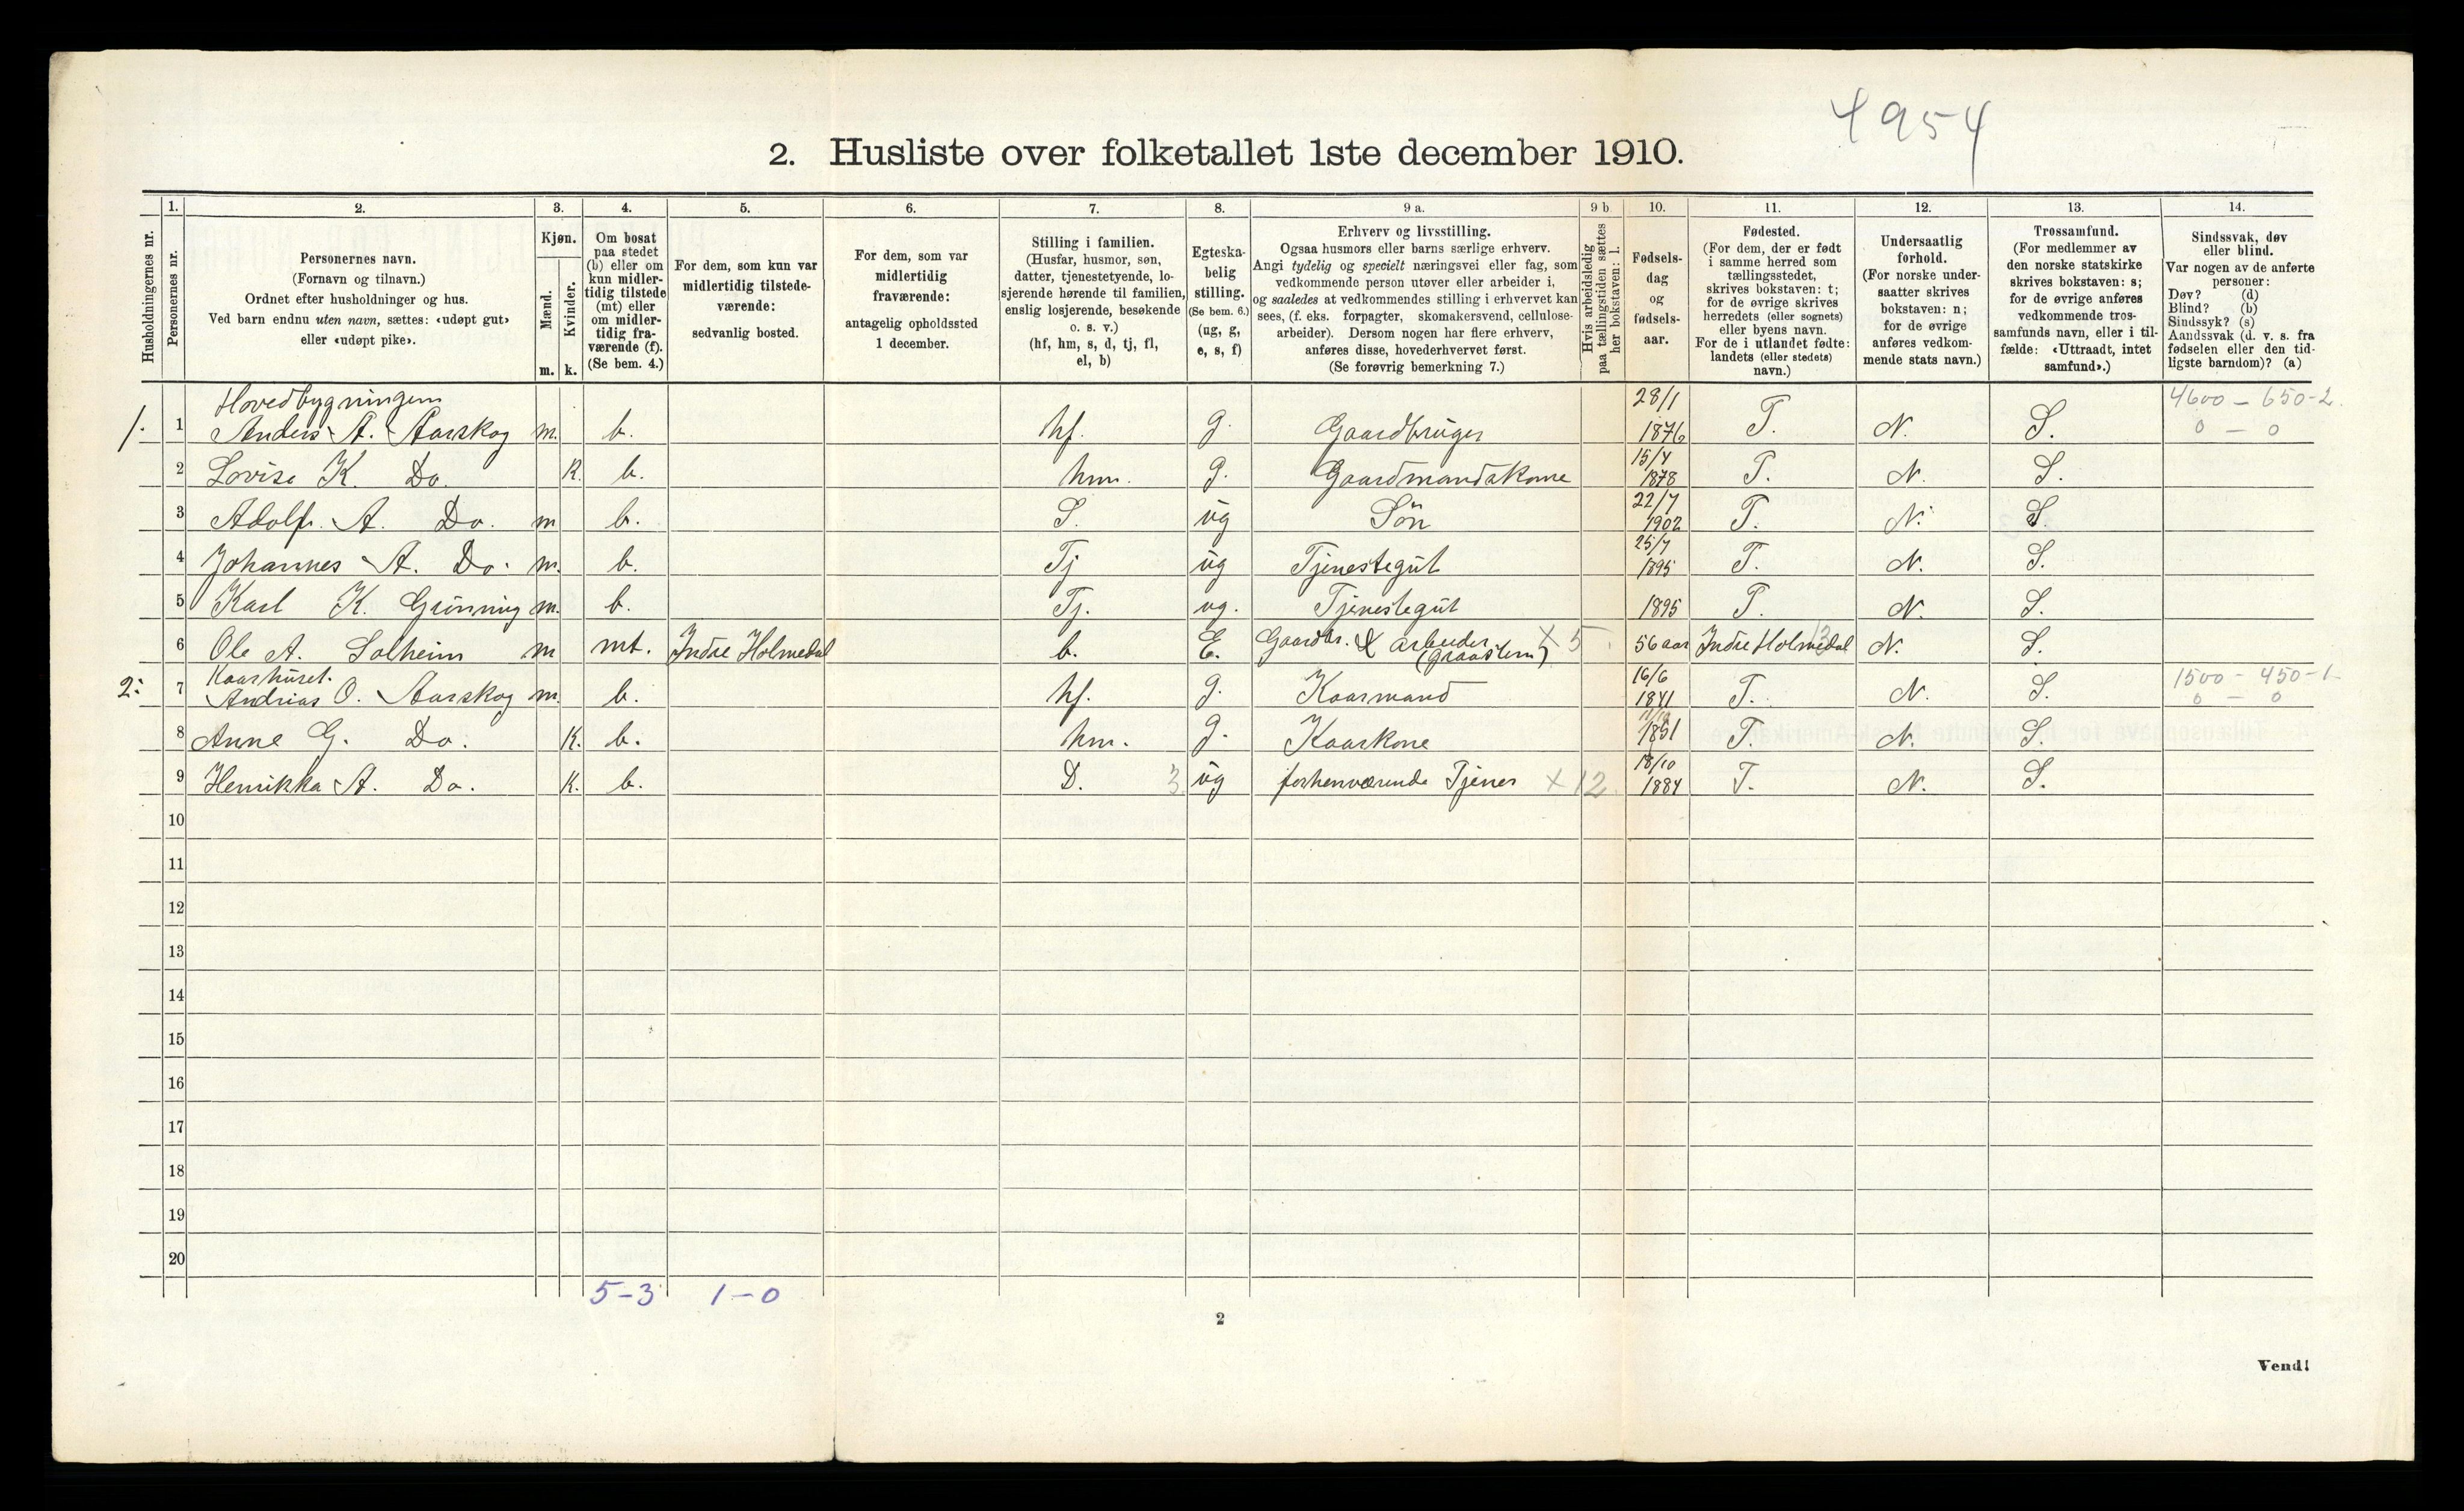 4954
2. Husliste over folketallet 1ste december 1910.
Husholdningernes nr.
1. Personernes nr.
2. Personernes navn.
(Fornavn og tilnavn.)
Ordnet efter husholdninger og hus.
Ved barn endnu uten navn, sættes: «udøpt gut»
eller «udøpt pike».
3. Kjøn.
Mænd. m.
Kvinder. k.
4. Om bosat
paa stedet
(b) eller om
kun midler-
tidig tilstede
(mt) eller
om midler-
tidig fra-
værende (f).
(Se bem. 4.)
5. For dem, som kun var
midlertidig tilstede-
værende:
sedvanlig bosted.
6. For dem, som var
midlertidig
fraværende:
antagelig opholdssted
1 december.
7. Stilling i familien.
(Husfar, husmor, søn,
datter, tjenestetyende, lo-
sjerende hørende til familien,
enslig losjerende, besøkende
o. s. v.)
(hf, hm, s, d, tj, fl,
el, b)
8. Egteska-
belig
stilling.
(Se bem. 6.)
(ug, g,
e, s, f)
9 a. Erhverv og livsstilling.
Ogsaa husmors eller barns særlige erhverv.
Angi tydelig og specielt næringsvei eller fag, som
vedkommende person utøver eller arbeider i,
og saaledes at vedkommendes stilling i erhvervet kan
sees, (f. eks. forpagter, skomakersvend, cellulose-
arbeider). Dersom nogen har flere erhverv,
anføres disse, hovederhvervet først.
(Se forøvrig bemerkning 7.)
9 b. Hvis arbeidsledig
paa tællingstiden sættes
her bokstaven: l.
10. Fødsels-
dag
og
fødsels-
aar.
11. Fødested.
(For dem, der er født
i samme herred som
tællingsstedet,
skrives bokstaven: t;
for de øvrige skrives
herredets (eller sognets)
eller byens navn.
For de i utlandet fødte:
landets (eller stedets)
navn.)
12. Undersaatlig
forhold.
(For norske under-
saatter skrives
bokstaven: n;
for de øvrige
anføres vedkom-
mende stats navn.)
13. Trossamfund.
(For medlemmer av
den norske statskirke
skrives bokstaven: s;
for de øvrige anføres
vedkommende tros-
samfunds navn, eller i til-
fælde: «Uttraadt, intet
samfund».)
14. Sindssvak, døv
eller blind.
Var nogen av de anførte
personer:
Døv? (d)
Blind? (b)
Sindssyk? (s)
Aandssvak (d. v. s. fra
fødselen eller den tid-
ligste barndom)? (a)
Hovedbygningen 28/1 4600 - 650-2.
1. 1 Anders A. Aarskog m. b. hf. g. Gaardbruger 1876 T. N. S. 0 - 0
2 Lovise K. Do. K. b. hm. g. Gaardmandskone 15/4 1878 T. N. S.
3 Adolf. A. Do. m b. S. ug Søn 22/7 1902 T. N. S.
4 Johannes A. Do. m. b. Tj ug Tjenestegut 25/7 1895 T. N. S.
5 Karl K. Grinning m. b. Tj. ug. Tjenestegut 1895 T. N. S.
6 Ole A. Solheim m mt. Indre Holmedal b. E. Gaardbr. & arbeider (graasten) x 5 56 aar Indre Holmedal 13 N. S.
Kaarhuset. 16/6 1500 - 450-1
2: 7 Andrias O. Aarskog m. b. hf. g. Kaarmand 1841 T. N. S. 0 - 0
8 Anne G. Do. K. b. hm. g. Kaarkone 1851 T. N. S.
9 Henrikka A. Do. K. b. D. 3 ug forhenværende Tjener x 12 18/10 1884 T. N. S.
10
11
12
13
14
15
16
17
18
19
20
5-3 1-0
2
Vend!